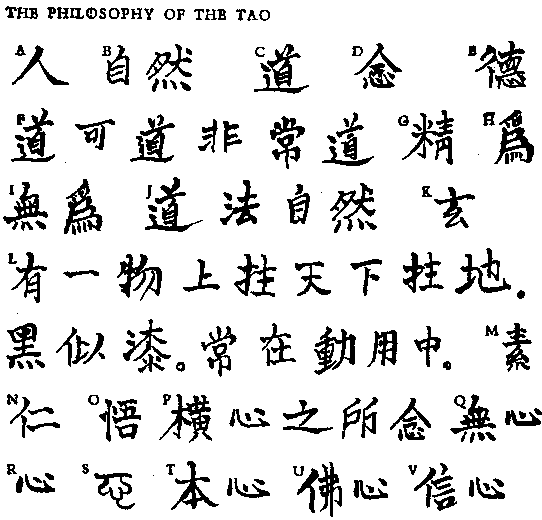 THE PHILOSOPHY OF THE TAO
A 人 B 自然 C 道 D 念 E 德
F 道可道非常道 G 精 H 爲
I 無爲 J 道法自然 K 玄
L 有一物上拄天下拄地.
黑似漆。常在動用中。 M 素
N 仁 O 悟 P 橫心之所念 Q 無心
R 心 S T 本心 U 佛心 V 信心